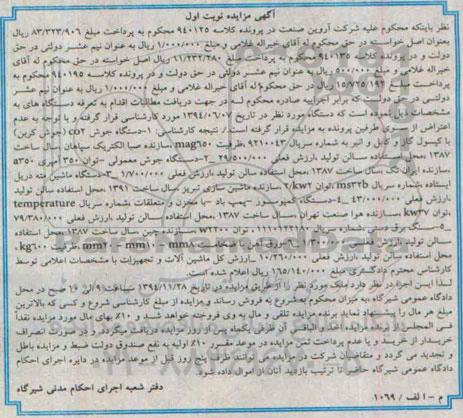 آگهی مزایده نوبت اول
نظر باینکه محکوم علیه شرکت آروین صنعت در پرونده کلاسه ۹۴۰۱۲۵ محکوم به پرداخت مبلغ ۸۳/۳۲۳/۹۰۶ ریال
بعنوان اصل خواسته در حق محکوم له آقای خیراله غلامی و مبلغ ۱/۰۰۰/۰۰۰ ریال به عنوان نیم عشر دولتی در حق
دولت و در پرونده کلاسه ۹۴۰۱۳۵ محکوم به پرداخت مبلغ ۶۱/۲۳۲/۲۸۰ ریال اصل خواسته در حق محکوم له آقای
خیراله غلامی و مبلغ ۵۰۰/۰۰۰ ریال به عنوان نیم عشر دولتی در حق دولت و در پرونده کلاسه ۹۴۰۱۹۵ محکوم به
پرداخت مبلغ ۱۵/۷۲۵/۱۹۲ ریال در حق محکوم له آقای خیراله غلامی و مبلغ ۱/۰۰۰/۰۰۰ ریال به عنوان نیم عشر
دولتی در حق دولت که برابر اجراییه صادره محکوم له در جهت دریافت مطالبات اقدام به تعرفه دستگاه های به
مشخصات ذیل نموده است که دستگاه مورد نظر در تاریخ ۱۳۹۴/۰۶/۰۲ مورد کارشناسی قرار گرفته و با توجه به عدم
اعتراض از سوی طرفین پرونده به مزایده قرار گرفته است./ نتیجه کارشناسی: ۱-دستگاه جوش co۲ (جوش کربن)
با کپسول گاز و کابل و انبر به شماره سریال ۹۲۱۰۰۴۳ ،ظرفیت mag۶۵۰ ،سازنده صبا الکتریک سپاهان ،سال ساخت
۱۳۸۷ ،محل استفاده سالن تولید ،ارزش فعلی ۲۹/۵۰۰/۰۰۰ ۲-دستگاه جوش معمولی –توان ۳۵۰ آمپری a۳۵۰
سازنده ایران تک ،سال ساخت ۱۳۸۷ ،محل استفاده سالن تولید ،ارزش فعلی ۱/۷۰۰/۰۰۰ ۳-دستگاه ماشین مته دریل
ایستاده ،شماره سریال ms۳۲b ،توان ۲/kw۲ ،سازنده ماشین سازی تبریز سال ساخت ۱۳۹۱ ،محل استفاده سالن تولید
،ارزش فعلی ۴۳/۰۰۰/۰۰۰ ۴-دستگاه کمپرسور –پمپ باد –با مخزن و متعلقات ،شماره سریال temperature
توان kw۳۷ ،سازنده هوا صنعت تهران ،سال ساخت ۱۳۸۷ ،محل استفاده سالن تولید ،ارزش فعلی ۷۹/۳۸۰/۰۰۰
۵-سنگ برق دستی ،شماره سریال ۱۱۱۰۱۲۲۱۱ ،توان w۲۲۰۰ ،سازنده چین ،سال ساخت ۱۳۸۷ ،محل استفاده
محل استفاده سالن تولید ،ارزش فعلی ۱۰/۲۶۰/۰۰۰ ،ارزش کل ماشین آلات و تجهیزات با مشخصات اعلامی توسط
کارشناس محترم دادگستری مبلغ ۱۶۵/۱۴۰/۰۰۰ ریال اعلام شده است.
لذا این اجرا در نظر دارد ملک مورد نظر را از طریق مزایده در تاریخ ۱۳۹۴/۱۱/۲۸ ساعت ۹ الی ۱۰ صبح در محل
دادگاه عمومی شیرگاه به میزان محکوم به شروع به فروش رساند و مزایده از مبلغ کارشناسی شروع و کسی که بالاترین
مبلغ هر مال را پیشنهاد نماید برنده مزایده تلقی و مال به وی فروخته خواهد شد و ۱۰% بهای مال مورد مزایده نقداً
فی المجلس از برنده مزایده اخذ و الباقی آن ظرف یکماه پس از روز مزایده دریافت میگردد و در صورت انصراف
خریدار از خرید و یا عدم پرداخت ثمن مزایده در موعد مقرر ۱۰% اولیه به نفع صندوق دولت ضبط و مزایده باطل
و تجدید می گردد و متقاضیان شرکت در مزایده می توانند ظرف پنج روز قبل از موعد مزایده در دایره اجرای احکام
دادگاه عمومی شیرگاه حاضر تا ترتیب بازدید آنان از اموال داده شود.
دفتر شعبه اجرای احکام مدنی شیرگاه
م – الف / ۱۰۶۹